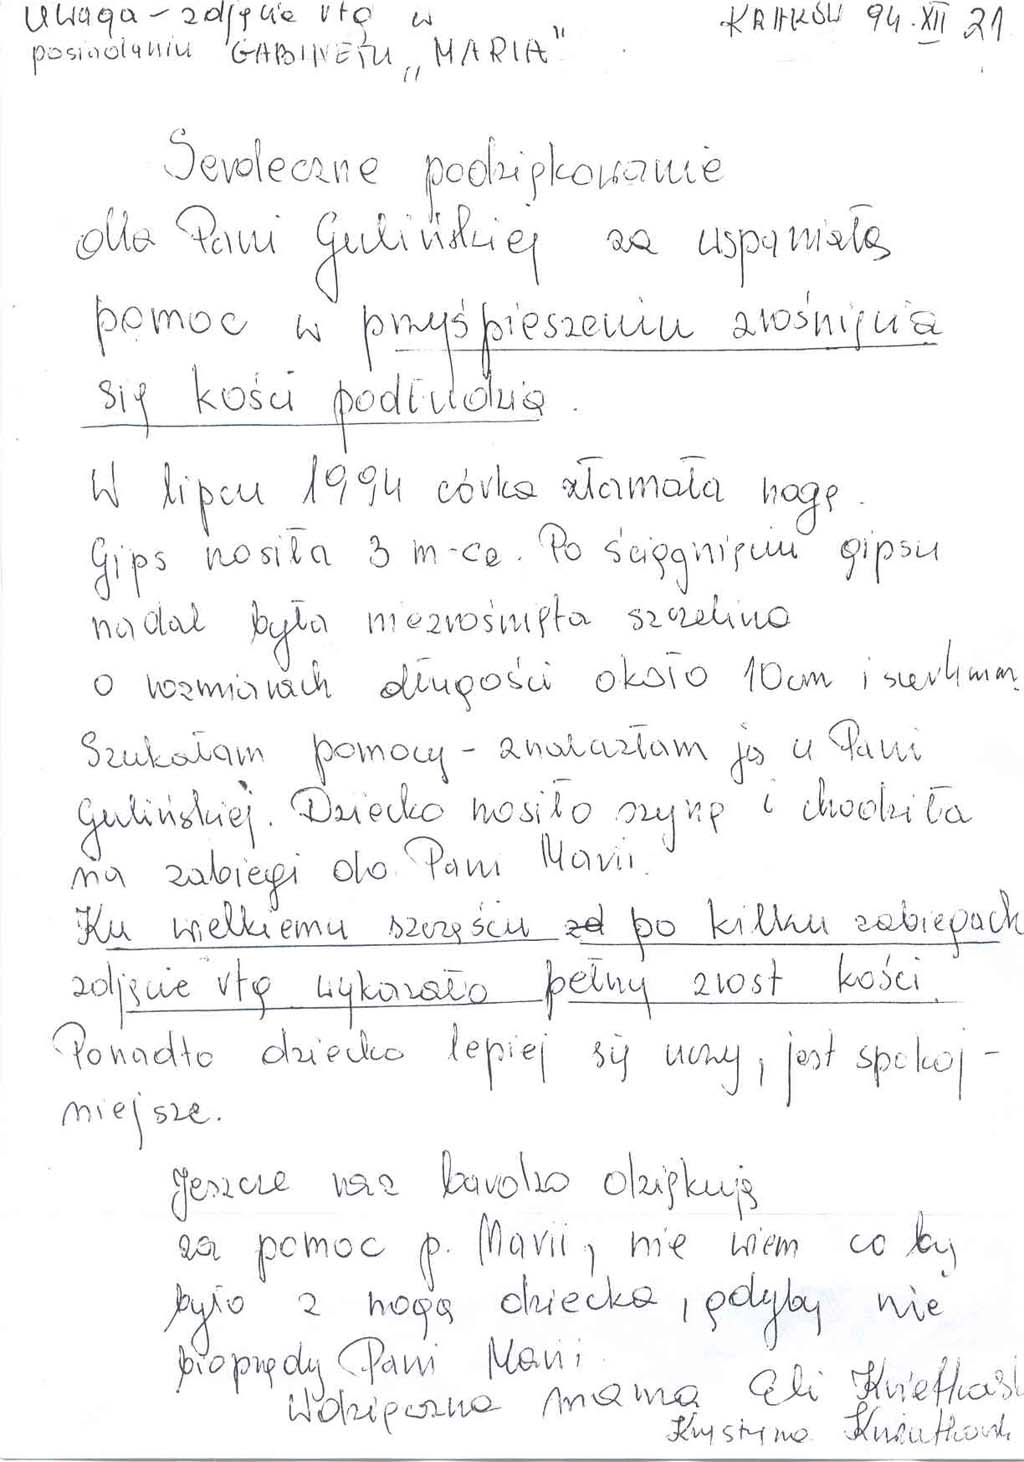 Uwaga – zdjęcie rtg w
posiadaniu GABINETU „MARIA"
KRAKÓW 94.XII 21
Serdeczne podziękowanie
dla Pani Gulińskiej za wspaniałą
pomoc w przyśpieszeniu zrośnięcia
się kości podłudzia.
W lipcu 1994 córka złamała nogę.
Gips nosiła 3 m-ce. Po ściągnięciu gipsu
nadal była niezrośnięta szczelina
o rozmiarach długości około 10cm i szer 4mm
Szukałam pomocy – znalazłam ją u Pani
Gulińskiej. Dziecko nosiło szynę i chodziła
na zabiegi do Pani Marii.
Ku wielkiemu szczęściu po kilku zabiegach
zdjęcie rtg wykazało pełny zrost kości.
Ponadto dziecko lepiej się uczy, jest spokoj-
niejsze.
Jeszcze raz bardzo dziękuję
za pomoc p. Marii, nie wiem co by
było z nogą dziecka, gdyby nie
bioprądy Pani Marii
Wdzięczna mama Eli
Krystyna